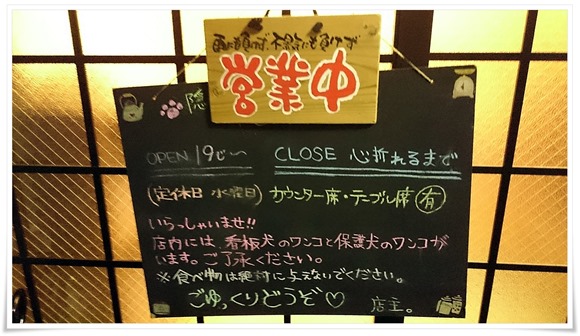 雨にも負けず、不景気にも負けず
営業中
隠
OPEN 19じ〜 CLOSE 心折れるまで
(定休日 水曜日) カウンター席・テーブル席 有
いらっしゃいませ!!
店内には、看板犬のワンコと保護犬のワンコが
います。ご了承ください。
※食べ物は絶対に与えないでください。
ごゆっくりどうぞ♡ 店主。